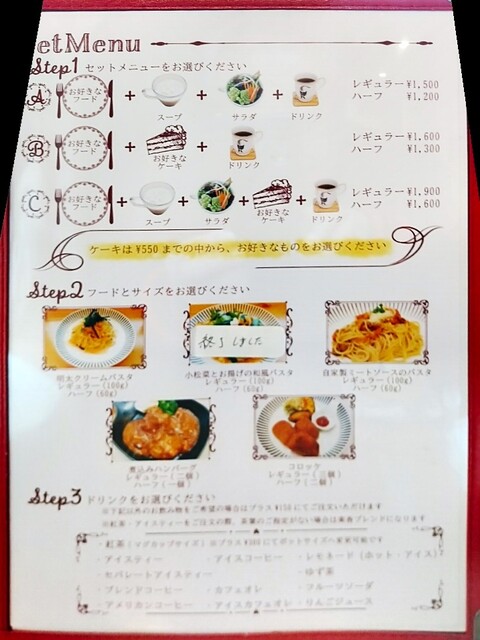 etMenu
Step1 セットメニューをお選びください
A お好きなフード + スープ + サラダ + ドリンク レギュラー ¥1,500
ハーフ ¥1,200
B お好きなフード + お好きなケーキ + ドリンク レギュラー ¥1,600
ハーフ ¥1,300
C お好きなフード + スープ + サラダ + お好きなケーキ + ドリンク レギュラー ¥1,900
ハーフ ¥1,600
ケーキは ¥550 までの中から、お好きなものをお選びください
Step2 フードとサイズをお選びください
終了しました
明太クリームパスタ
レギュラー (100g)
ハーフ (60g)
小松菜とお揚げの和風パスタ
レギュラー (100g)
ハーフ (60g)
自家製ミートソースのパスタ
レギュラー (100g)
ハーフ (60g)
煮込みハンバーグ
レギュラー (二個)
ハーフ (一個)
コロッケ
レギュラー (三個)
ハーフ (二個)
Step3 ドリンクをお選びください
※下記以外のお飲み物をご希望の場合はプラス ¥150 にてご注文いただけます
※紅茶・アイスティーをご注文の際、茶葉のご指定がない場合は東寺ブレンドになります
・紅茶 (マグカップサイズ) ※プラス ¥300 にてポットサイズへ変更可能です
・アイスティー
・アイスコーヒー
・レモネード (ホット・アイス)
・セパレートアイスティー
・ゆず茶
・ブレンドコーヒー
・カフェオレ
・フルーツソーダ
・アメリカンコーヒー
・アイスカフェオレ
・りんごジュース